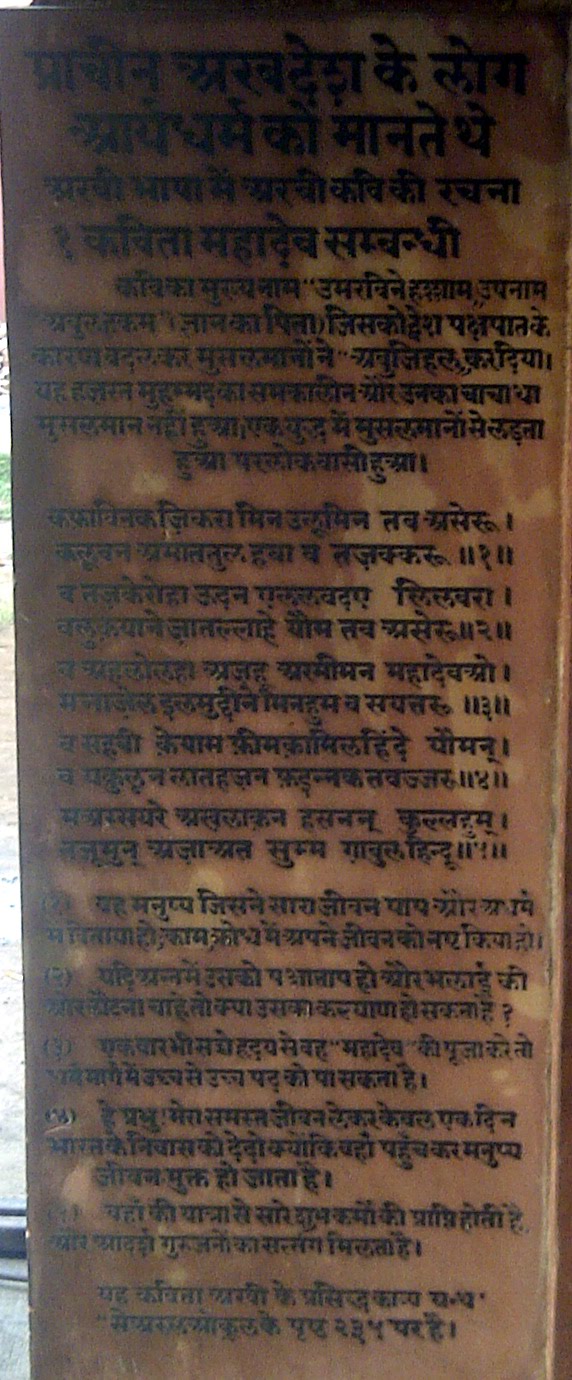 प्राचीन अरबदेश के लोग
आर्यधर्म को मानते थे
अरबी भाषा में अरबी कवि की रचना
१ कविता महादेव सम्बन्धी
कवि का मुख्य नाम "उमर बिने हश्शाम" उपनाम
"अबुल हकम" (ज्ञान का पिता) जिसको द्वेश पक्षपात के
कारण बदल कर मुसलमानों ने "अबुजिहल" कर दिया।
यह हज़रत मुहम्मद का समकालीन और उनका चाचा था
मुसलमान नहीं हुआ, एक युद्ध में मुसलमानों से लड़ता
हुआ परलोकवासी हुआ।
कफ़ाविनक ज़िकरा मिन उलूमिन तव असेरू।
कलूवन अमाततुल हवा व तज़क्करू ॥१॥
व तज़केरोहा उदन एलूलवदए लिलवरा।
वलुकयाने ज़ातल्लाहे यौम तव असेरू॥२॥
व अहलोलहा अज़हू अरमीमन महादेवओ।
मनाज़ेल इलमुद्दीने मिनहुम व सयत्तरू ॥३॥
व सहबी केयाम फ़ीमकामिल हिंदे यौमन्।
व यकुलून लातहज़न फ़इन्नक तवज्जरु॥४॥
मअस्सयरे अखलाकन हसनन् कुल्लहुम्।
नजूमुन् अज़ाअत सुम्म गाबुल हिन्दू॥५॥
(१) वह मनुष्य जिसने सारा जीवन पाप और अधर्म
में बिताया हो, काम, क्रोध में अपने जीवन को नष्ट किया हो।
(२) यदि अन्त में उसको पश्चाताप हो और भलाई की
ओर लौटना चाहे तो क्या उसका कल्याण हो सकता है ?
(३) एक बार भी सच्चे हृदय से वह "महादेव" की पूजा करे तो
धर्म मार्ग में उच्च से उच्च पद को पा सकता है।
(४) हे प्रभु! मेरा समस्त जीवन लेकर केवल एक दिन
भारत के निवास को दे दो क्योंकि वहाँ पहुँच कर मनुष्य
जीवन मुक्त हो जाता है।
(५) वहाँ की यात्रा से सारे शुभ कर्मों की प्राप्ति होती है,
और आदर्श गुरुजनों का सत्संग मिलता है।
यह कविता अरबी के प्रसिद्ध काव्य ग्रन्थ
"सेअरुलओकुल के पृष्ठ २३५ पर है।